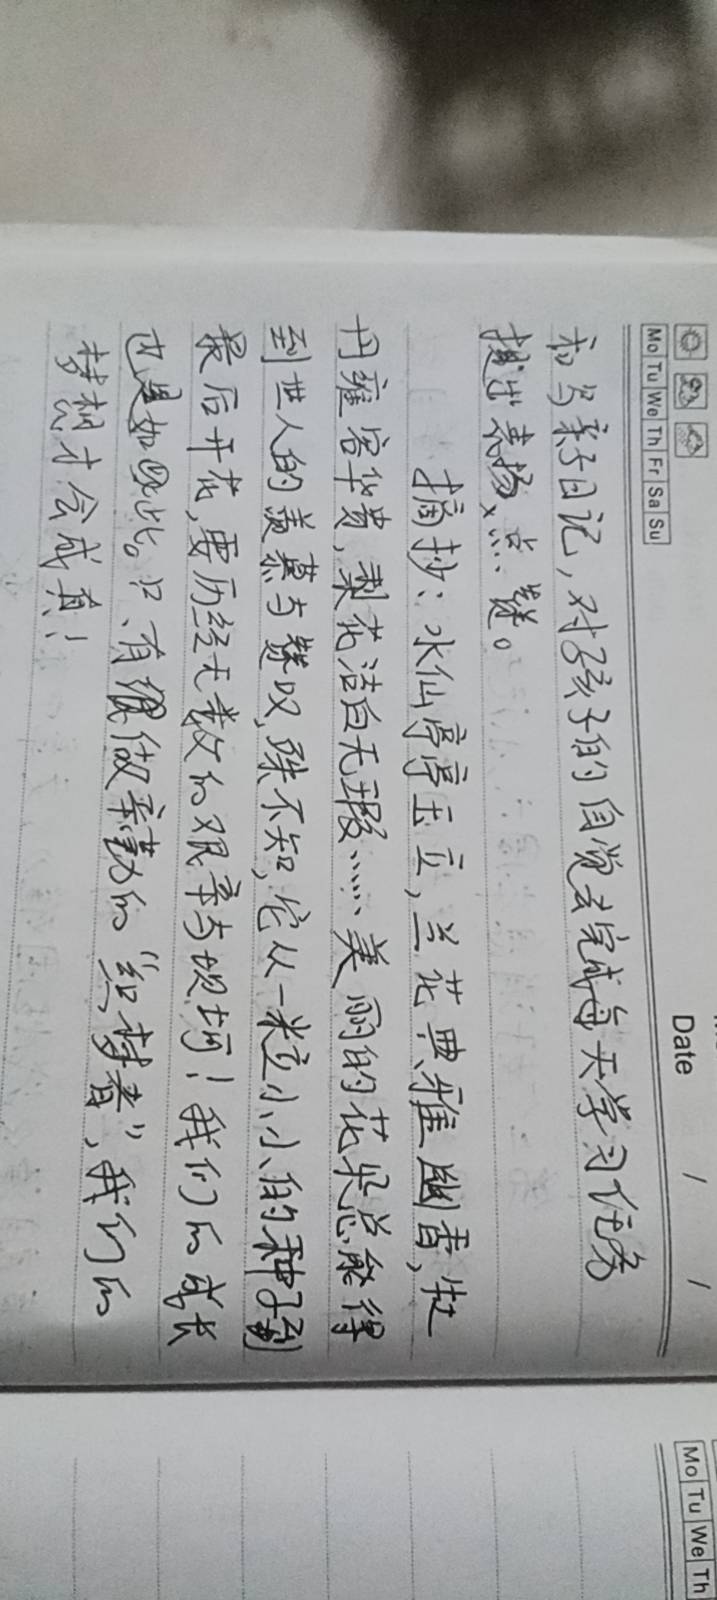 Date / /
Mo Tu We Th Fr Sa Su
和写亲子日记,对孩子的自觉去完成每天学习任务
提出表扬、点赞。
摘抄:水仙亭亭玉立,兰花典雅幽香,牡
丹雍容华贵,梨花洁白无瑕……美丽的花朵总能得
到世人的羡慕与赞叹,殊不知,它从一粒小小的种子到
最后开花,要历经无数的艰辛与坎坷!我们的成长
也是如此。只有做辛勤的“织梦者”,我们的
梦想才会成真!
Mo Tu We Th